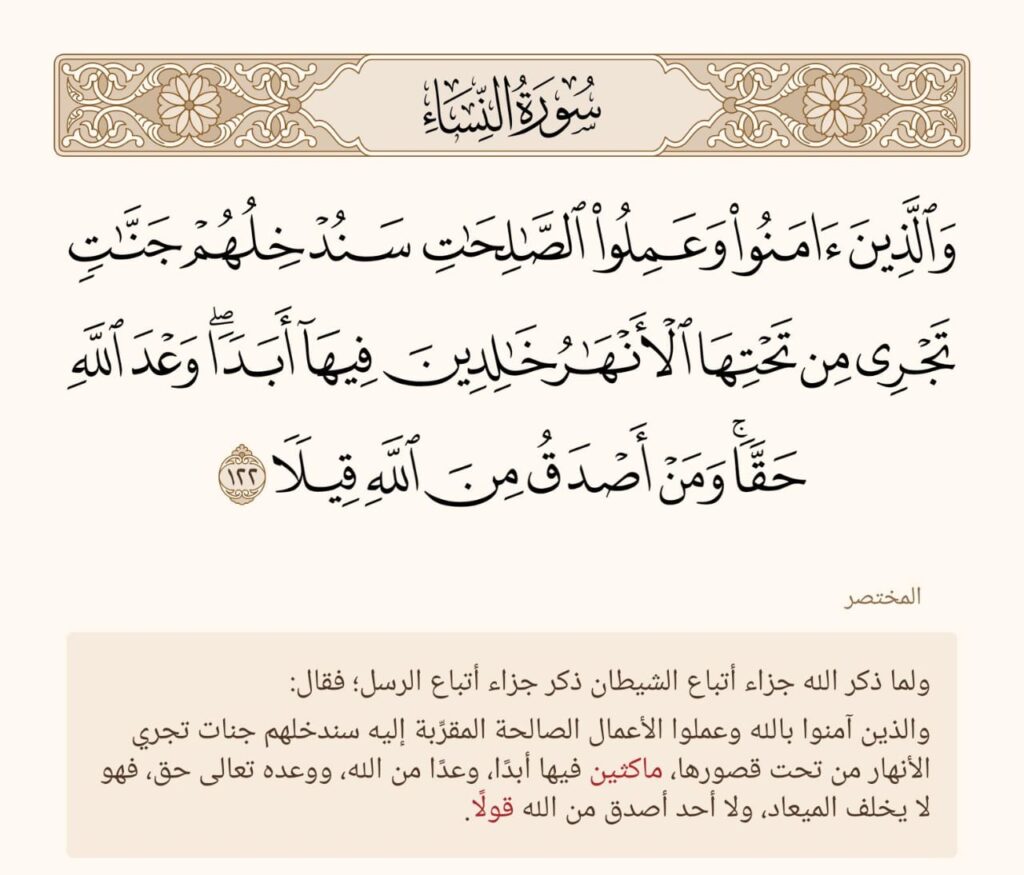 سُورَةُ النِّسَاءِ
وَٱلَّذِينَ ءَامَنُوا۟ وَعَمِلُوا۟ ٱلصَّـٰلِحَـٰتِ سَنُدْخِلُهُمْ جَنَّـٰتٍ
تَجْرِى مِن تَحْتِهَا ٱلْأَنْهَـٰرُ خَـٰلِدِينَ فِيهَآ أَبَدًا ۖ وَعْدَ ٱللَّهِ
حَقًّا ۚ وَمَنْ أَصْدَقُ مِنَ ٱللَّهِ قِيلًا ١٢٢
المختصر
ولما ذكر الله جزاء أتباع الشيطان ذكر جزاء أتباع الرسل؛ فقال:
والذين آمنوا بالله وعملوا الأعمال الصالحة المقرَّبة إليه سندخلهم جنات تجري
الأنهار من تحت قصورها، ماكثين فيها أبدًا، وعدًا من الله، ووعده تعالى حق، فهو
لا يخلف الميعاد، ولا أحد أصدق من الله قولًا.